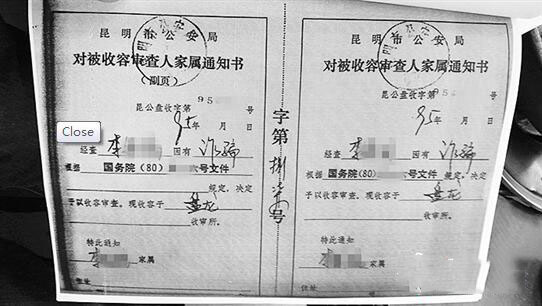 昆明市公安局
对被收容审查人家属通知书
(副页)
昆公盘收字第95 号
95年 月 日
经查 李 因有 诈骗
根据 国务院(80) 六号文件
规定,决定
予以收容审查。现收容于 盘龙
收审所。
特此通知
李 家属
住址
字第
号
昆明市公安局
对被收容审查人家属通知书
昆公盘收字第95 号
95年 月 日
经查 李 因有 诈骗
根据 国务院(80) 号文件
规定,决定
予以收容审查。现收容于 盘龙
收审所。
特此通知
李 家属
住址
Close